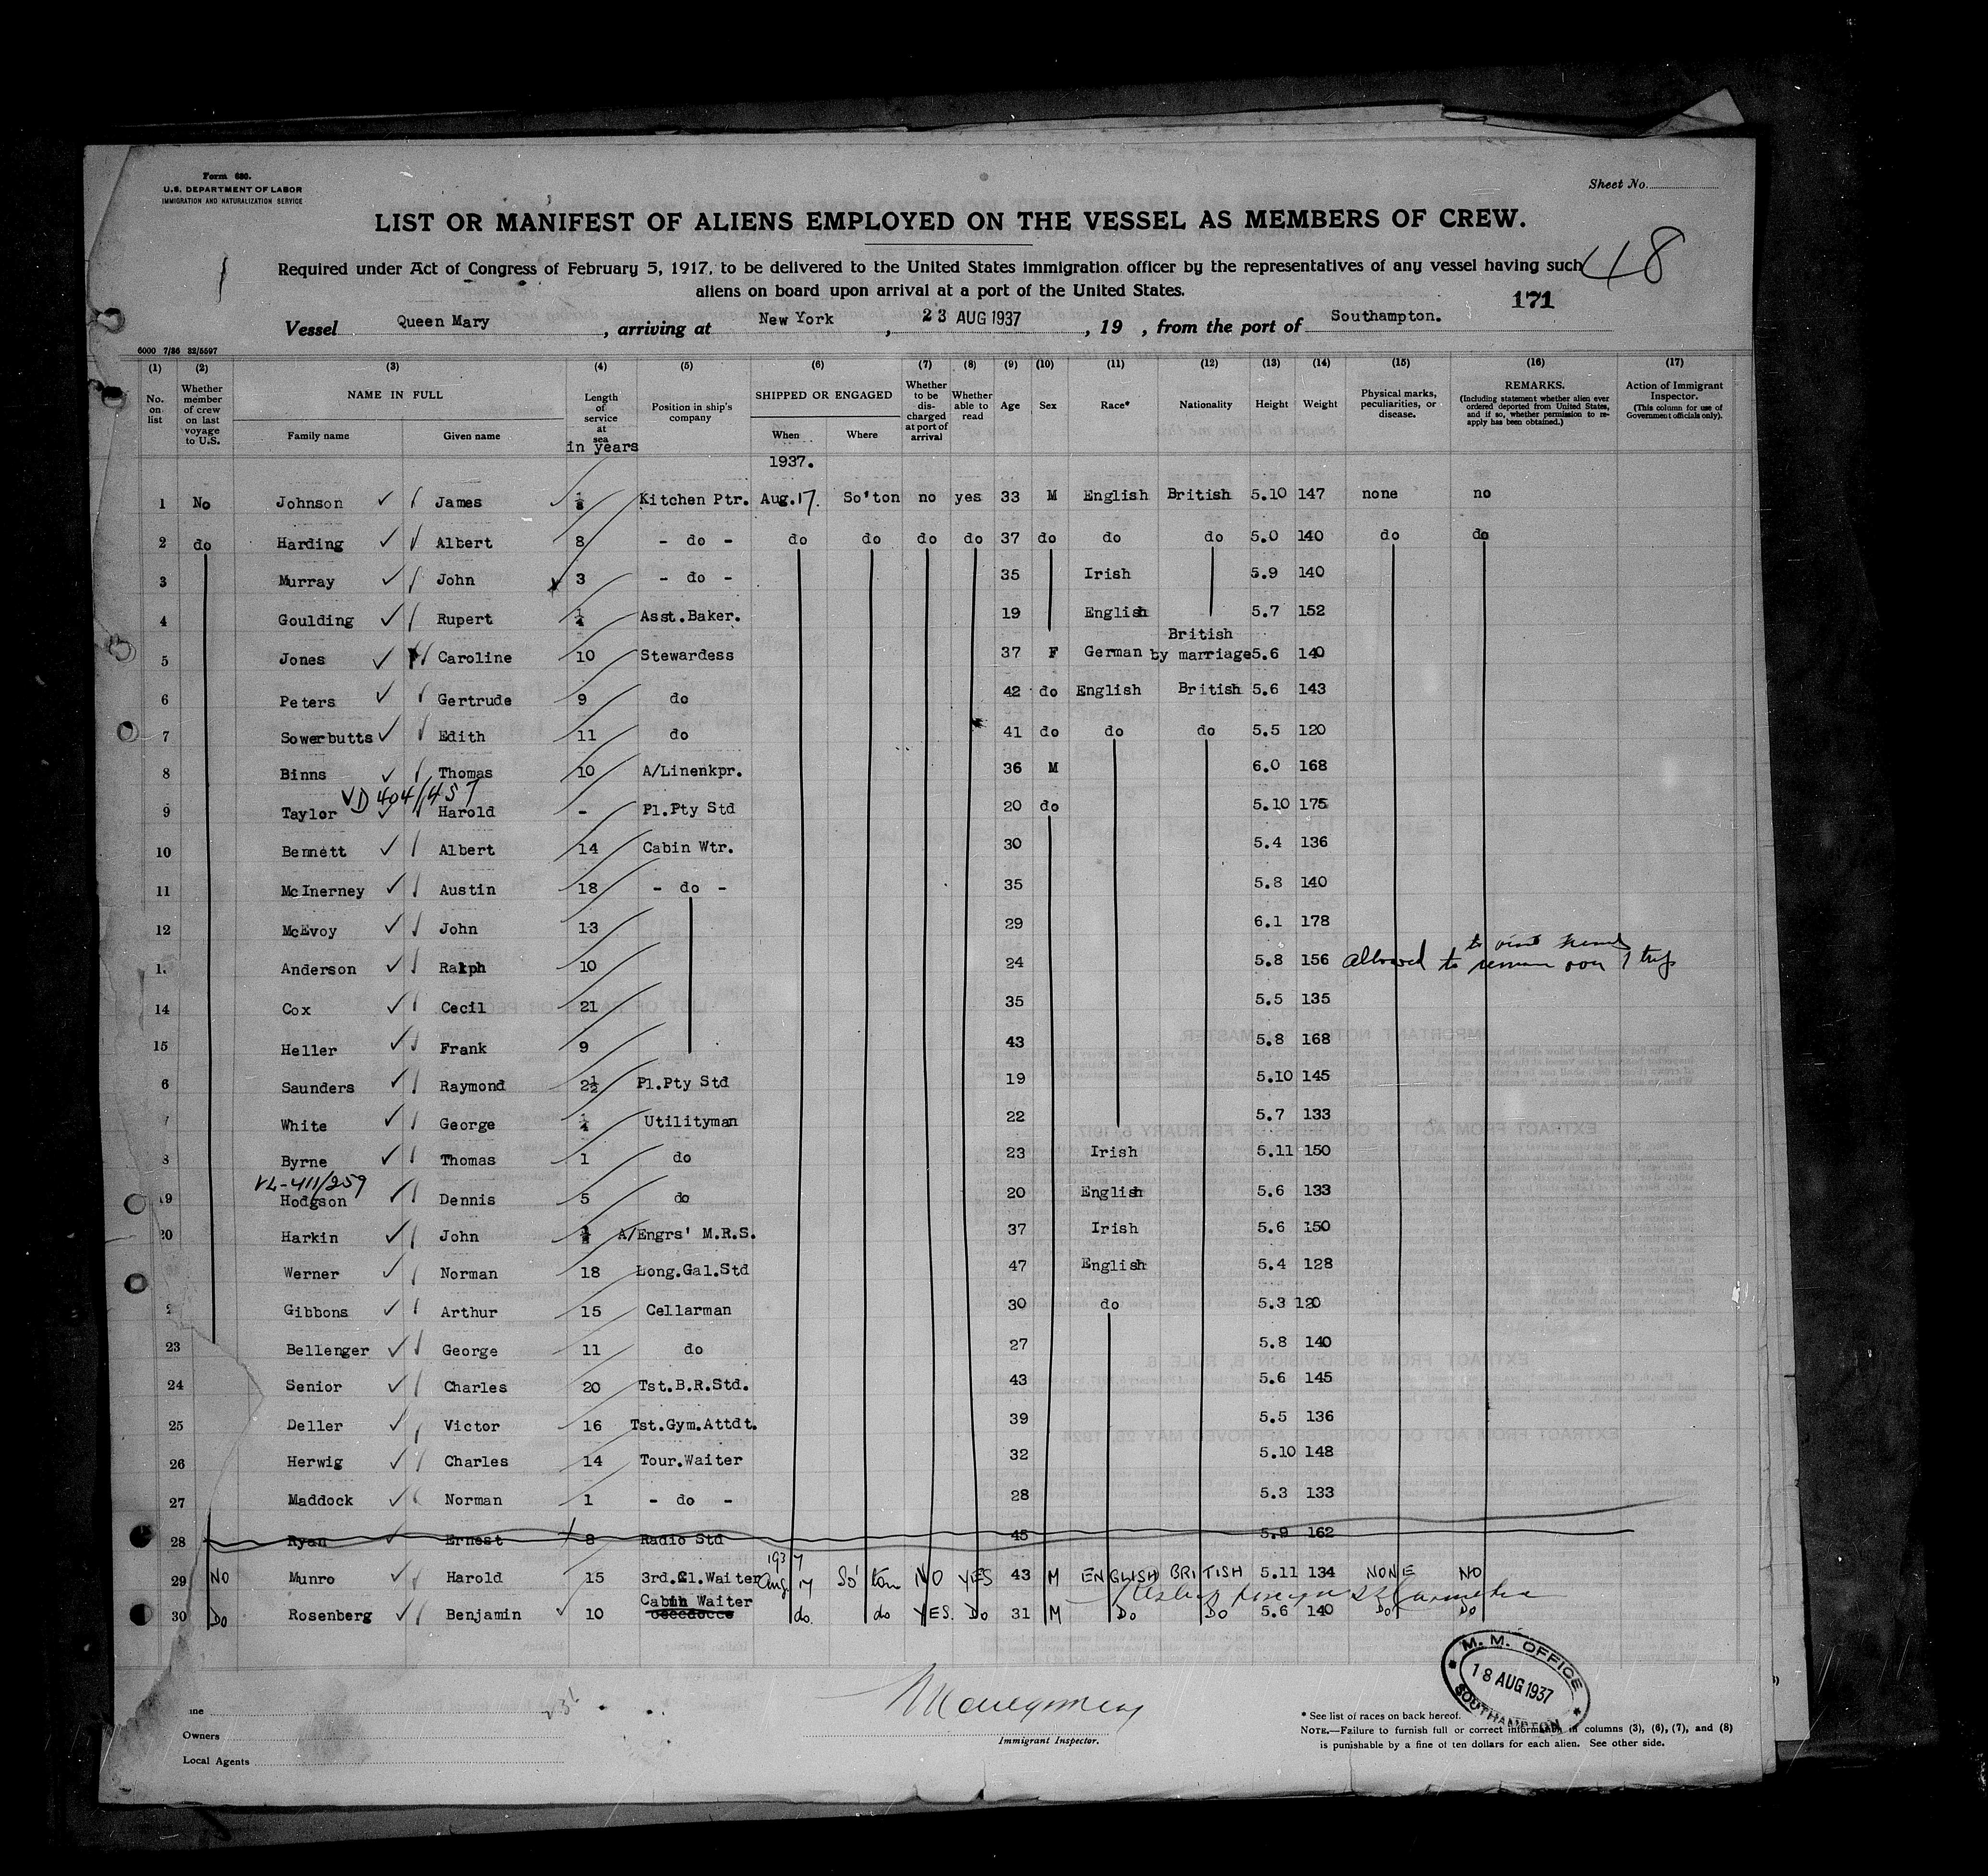 Form 680.
U.S. DEPARTMENT OF LABOR
IMMIGRATION AND NATURALIZATION SERVICE
Sheet No.
LIST OR MANIFEST OF ALIENS EMPLOYED ON THE VESSEL AS MEMBERS OF CREW.
48
Required under Act of Congress of February 5, 1917, to be delivered to the United States immigration officer by the representatives of any vessel having such
aliens on board upon arrival at a port of the United States.
171
Vessel Queen Mary, arriving at New York, 23 AUG 1937, 19 , from the port of Southampton.
6000 7/36 32/5597
(1) (2) (3) (4) (5) (6) (7) (8) (9) (10) (11) (12) (13) (14) (15) (16) (17)
No. on list
Whether member of crew on last voyage to U.S.
NAME IN FULL
Family name Given name
Length of service at sea in years
Position in ship's company
SHIPPED OR ENGAGED
When Where
Whether to be discharged at port of arrival
Whether able to read
Age
Sex
Race*
Nationality
Height
Weight
Physical marks, peculiarities, or disease.
REMARKS.
(Including statement whether alien ever ordered deported from United States, and if so, whether permission to reapply has been obtained.)
Action of Immigrant Inspector.
(This column for use of Government officials only).
1937.
1 No Johnson James 1/8 Kitchen Ptr. Aug.17. So'ton no yes 33 M English British 5.10 147 none no
2 do Harding Albert 8 - do - do do do do 37 do do do 5.0 140 do do
3 Murray John 3 - do - 35 Irish 5.9 140
4 Goulding Rupert 1/4 Asst.Baker. 19 English 5.7 152
5 Jones Caroline 10 Stewardess 37 F German British by marriage 5.6 140
6 Peters Gertrude 9 do 42 do English British 5.6 143
7 Sowerbutts Edith 11 do 41 do do do 5.5 120
8 Binns Thomas 10 A/Linenkpr. 36 M 6.0 168
VD 404/457
9 Taylor Harold - Pl.Pty Std 20 do 5.10 175
10 Bennett Albert 14 Cabin Wtr. 30 5.4 136
11 McInerney Austin 18 - do - 35 5.8 140
12 McEvoy John 13 29 6.1 178
to visit friends
1 Anderson Ralph 10 24 5.8 156 allowed to remain over 1 trip
14 Cox Cecil 21 35 5.5 135
15 Heller Frank 9 43 5.8 168
6 Saunders Raymond 2½ Pl.Pty Std 19 5.10 145
7 White George 1/4 Utilityman 22 5.7 133
8 Byrne Thomas 1 do 23 Irish 5.11 150
VL-411/259
19 Hodgson Dennis 5 do 20 English 5.6 133
20 Harkin John A/Engrs' M.R.S. 37 Irish 5.6 150
Werner Norman 18 Long.Gal.Std 47 English 5.4 128
2 Gibbons Arthur 15 Cellarman 30 do 5.3 120
23 Bellenger George 11 do 27 5.8 140
24 Senior Charles 20 Tst.B.R.Std. 43 5.6 145
25 Deller Victor 16 Tst.Gym.Attdt. 39 5.5 136
26 Herwig Charles 14 Tour.Waiter 32 5.10 148
27 Maddock Norman 1 - do - 28 5.3 133
28 Ryan Ernest 8 Radio Std 45 5.9 162
1937
29 NO Munro Harold 15 3rd.Cl.Waiter Aug 17 So'ton NO YES 43 M ENGLISH BRITISH 5.11 134 NONE NO
Cabin Waiter
30 DO Rosenberg Benjamin 10 do. do YES. DO 31 M DO DO 5.6 140 DO DO
M. M. OFFICE
18 AUG 1937
SOUTHAMPTON
Immigrant Inspector.
ine
Owners
Local Agents
* See list of races on back hereof.
NOTE.—Failure to furnish full or correct information in columns (3), (6), (7), and (8)
is punishable by a fine of ten dollars for each alien. See other side.